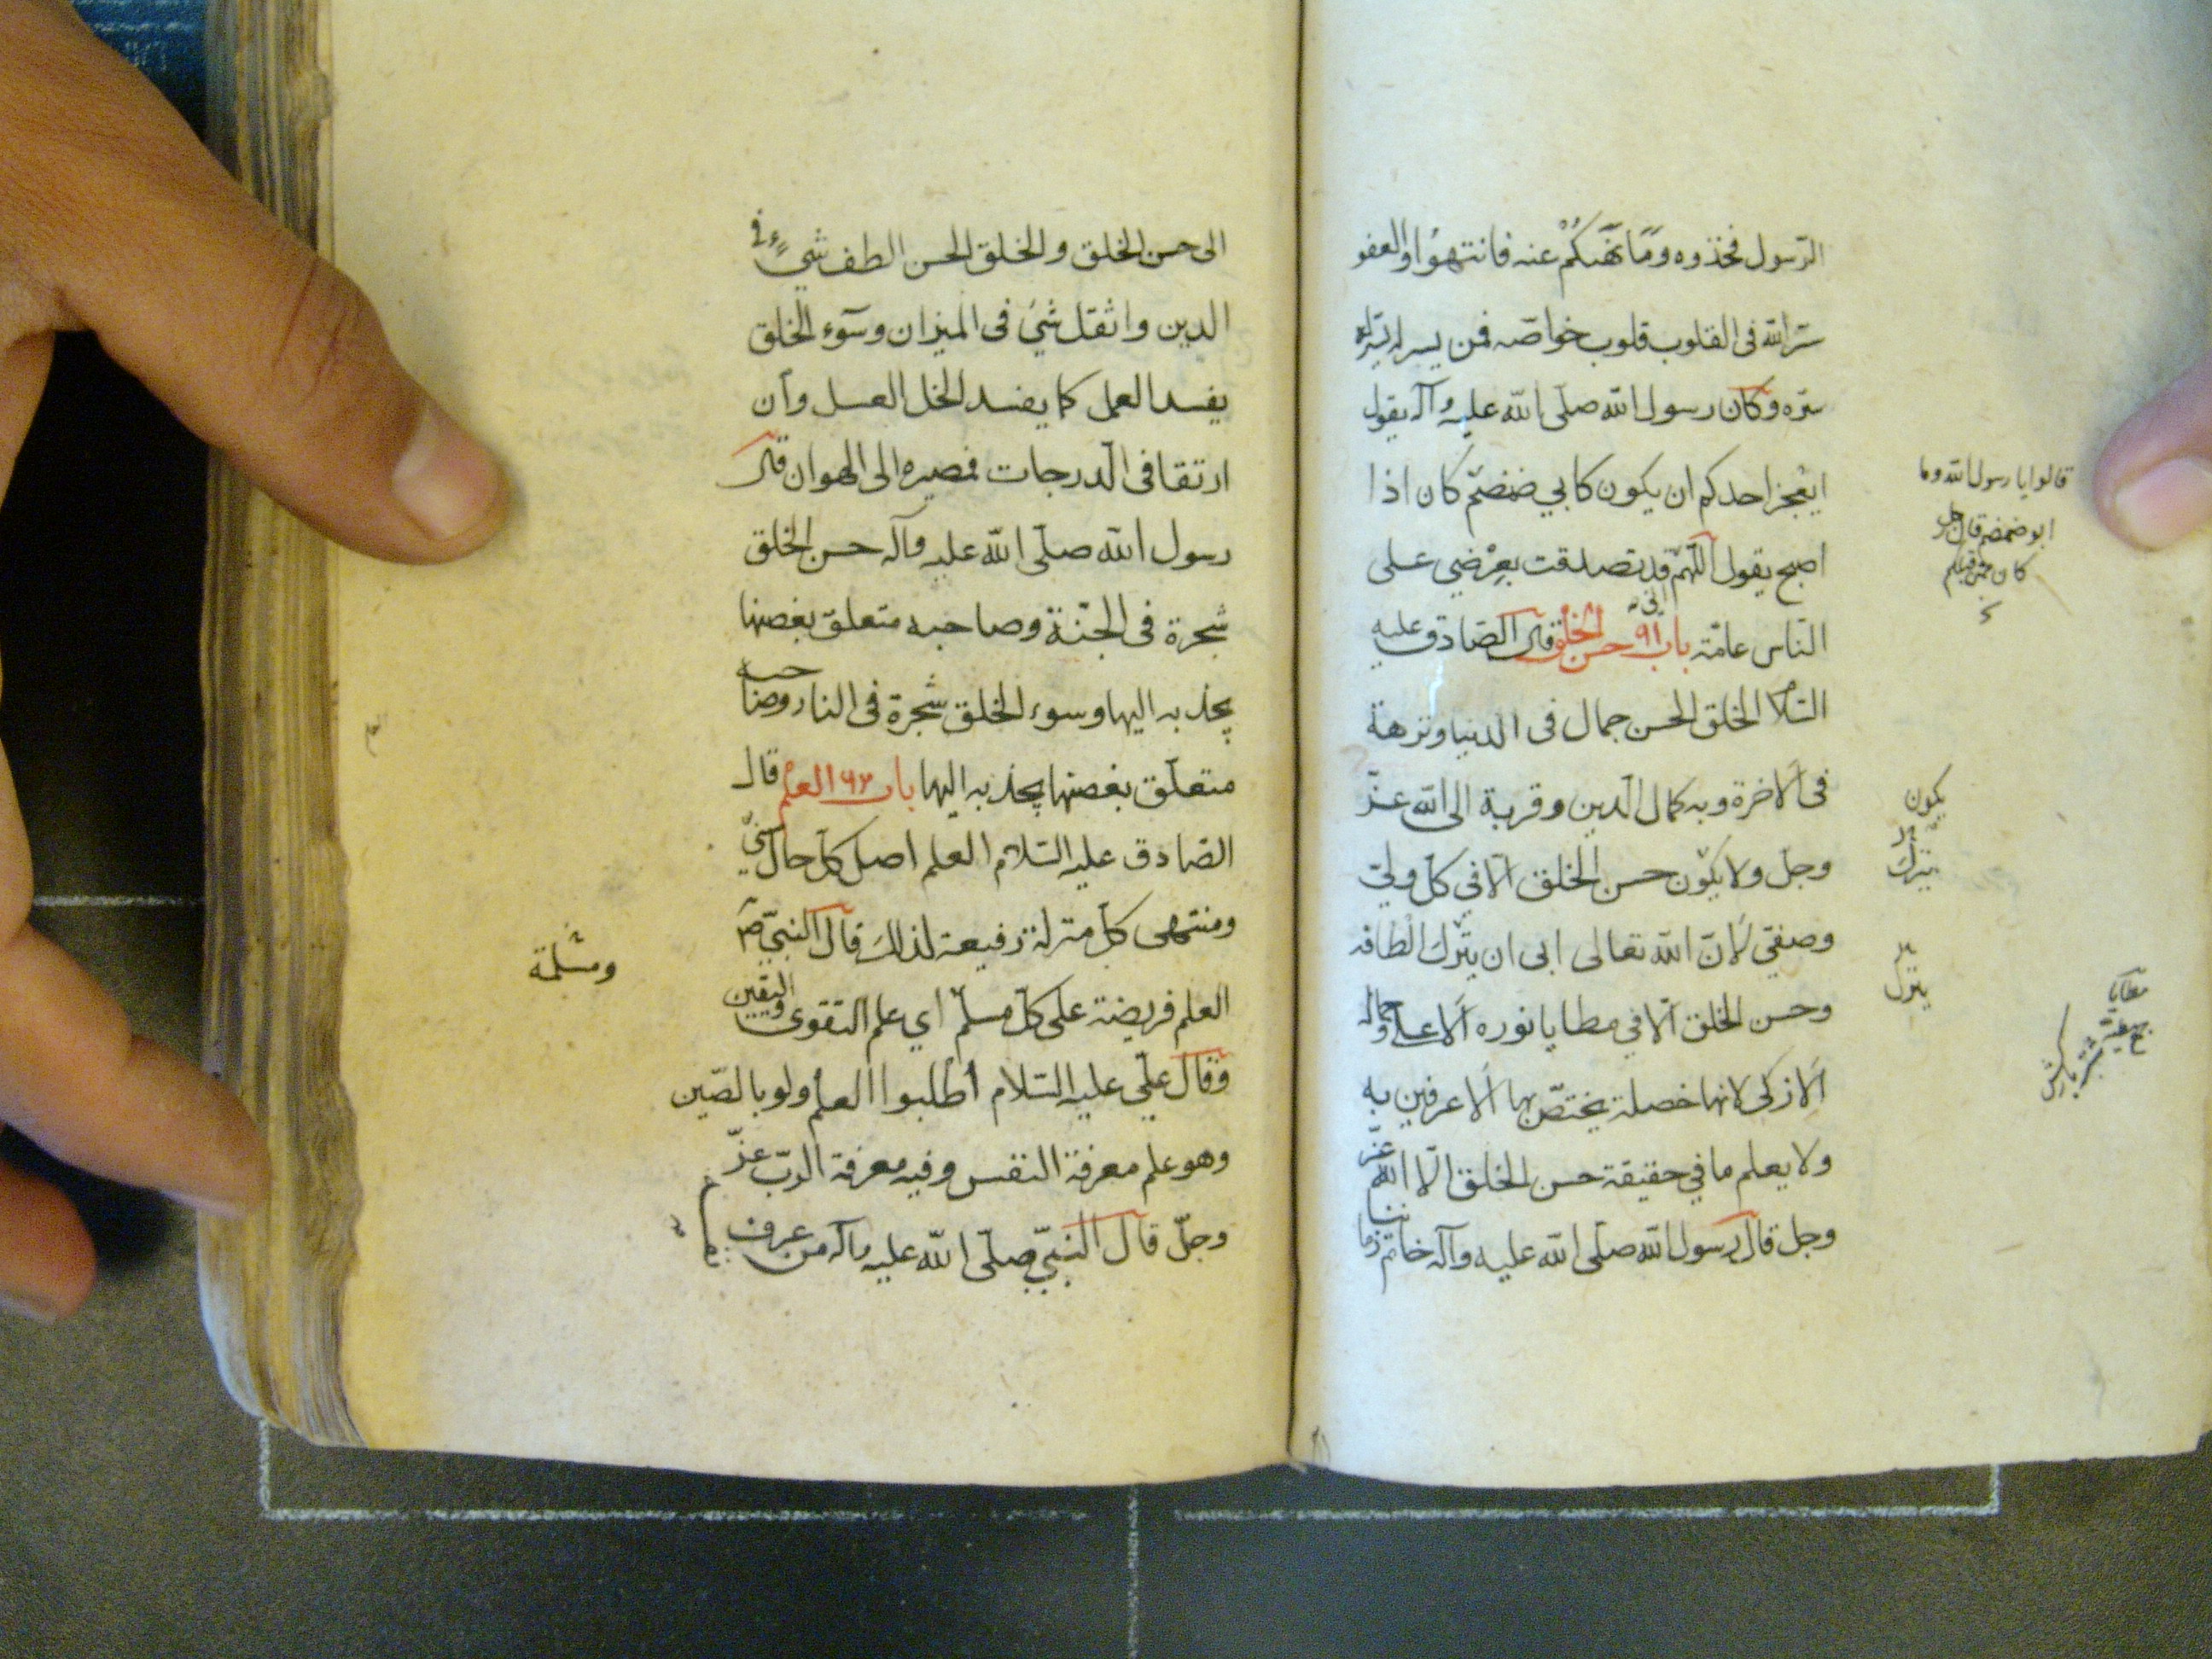 الرّسول فخذوه وَمَا نَهٰیكُمْ عنه فانتهوُا والعفو
سّر الله فى القلوب قلوب خواصّه فمن يسر له
سّره وكان رسول الله صلّى الله عليه وآله يقول
ايعجز احدكم ان يكون كابي ضمضم كان اذا
اصبح يقول اللّهمّ انى قد تصدقت بِعِرْضي على
النّاس عامّة باب ٩١ حسن الخلق قال الصّادق عليه
السّلام الخلق الحسن جمال فى الدنيا ونزهة
فى الاخرة وبه كمال الّدين وقربة الى الله عزّ
وجلّ ولا يكون حسن الخلق الّا في كلّ وليّ
وصفيّ لانّ الله تعالى ابى ان يترك الطافه
وحسن الخلق الّا في مطايا نوره الاعلى وجماله
الازكى لانها خصلة يختصّ بها الاعرفين به
ولا يعلم ما في حقيقة حسن الخلق الّا الله عزّ
وجل قال رسول الله صلّى الله عليه وآله خاتم زماننا
قالوا يا رسول الله وما
ابو ضمضم قال رجل
كان ممن قبلكم
يكون
يترك
يترك
مطايا
جمع مطية
الى حسن الخلق والخلق الحسن الطف شيءٍ في
الدين واثقل شيَ فى الميزان وسوء الخلق
يفسد العمل كما يفسد الخل العسل وان
ارتقا فى الّدرجات فمصيره الى الهوان قال
رسول الله صلّى الله عليه وآله حسن الخلق
شجرة فى الجنّة وصاحبه متعلق بغصنها
يجذبه اليها وسوء الخلق شجرة فى النار وصاحبه
متعلّق بغصنها يجذبه اليها باب ٩٢ العلم قال
الصّادق عليه السّلام العلم اصل كلّ حال سنيّ
ومنتهى كلّ منزلة رفيعة لذلك قال النبيّ صَ
العلم فريضة على كلّ مسلم اي علم التقوى واليقين
وقال علّي عليه السّلام أطلبوا العلم ولو بالصّين
وهو علم معرفة النفس وفيه معرفة الربّ عزّ
وجلّ قال النبيّ صلّى الله عليه وآله من عرف
ومسلمة